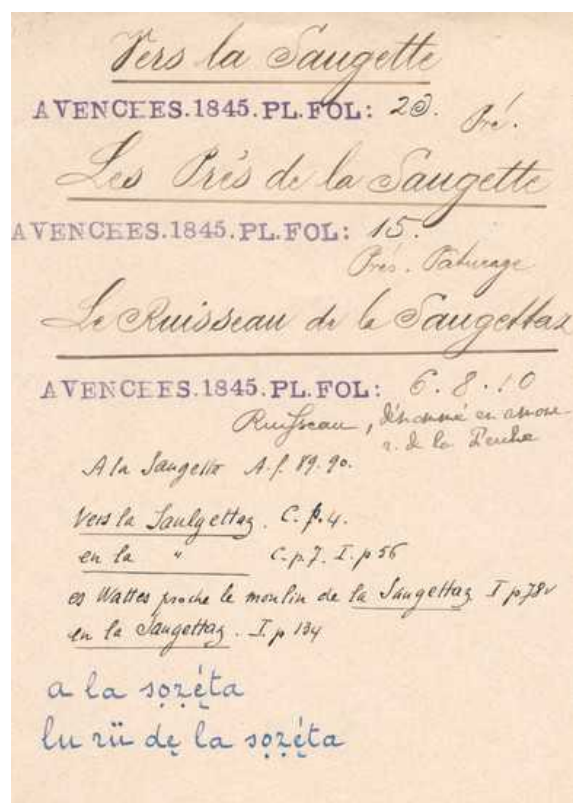 Vers la Saugette
AVENCHES.1845.PL.FOL: 20. Pré.
Les Prés de la Saugette
AVENCHES.1845.PL.FOL: 15.
Prés. Pâturage
Le Ruisseau de la Saugettaz
AVENCHES.1845.PL.FOL: 6.8.10
Ruisseau, dénommé en amont
r. de la
A la Saugetta A.f. 89.90.
Vers la Saulgettaz. C.p.4.
en la " C.p.7. I.p 56
es Wattes proche le moulin de la Saugettaz I p78v
en la Saugettaz. I.p 134
a la sǫzẹ́ta
lu rü dẹ la sǫzẹ́ta